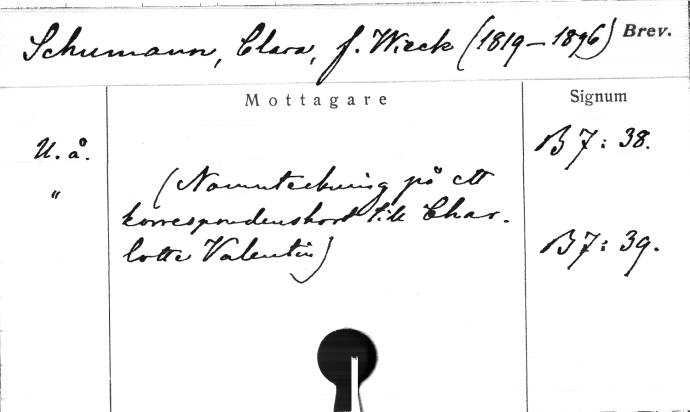 Schumann, Clara, f. Wieck (1819–1896) Brev.
Mottagare Signum
U. å. B 7: 38.
" (Namnteckning på ett
korrespondenskort till Char-
lotte Valentin) B 7: 39.